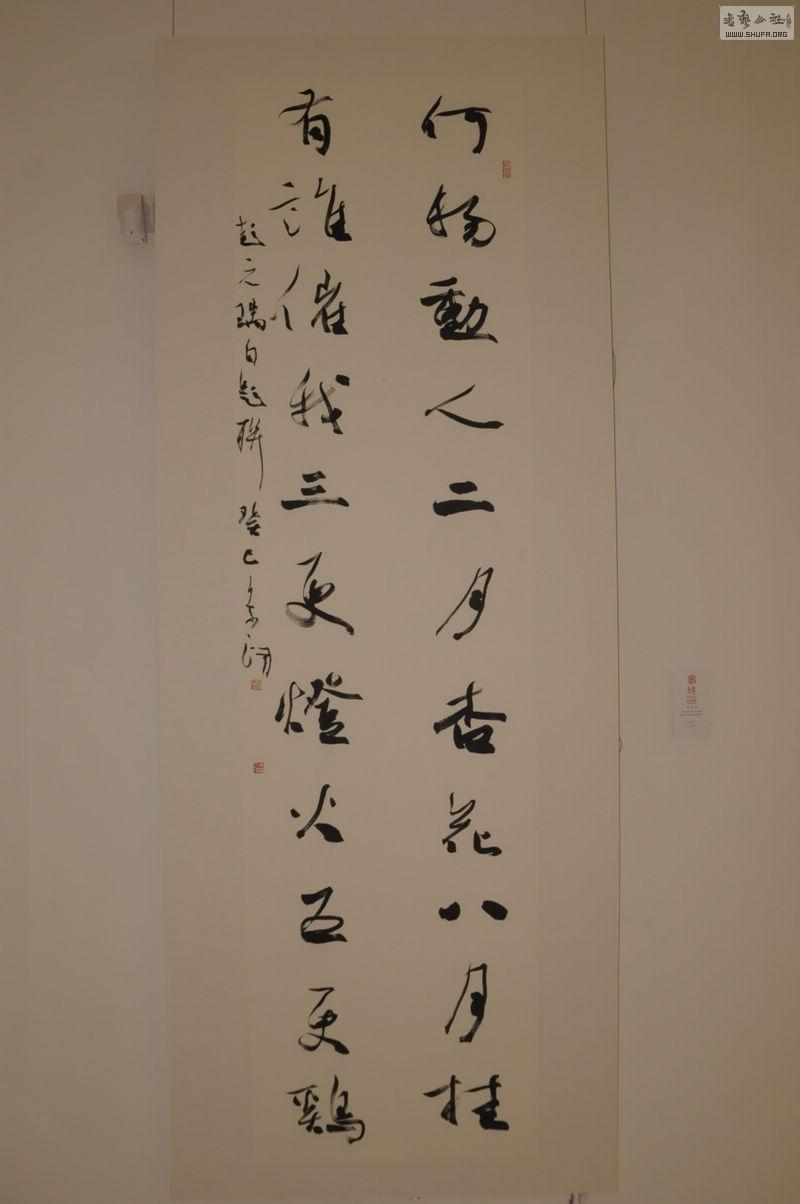 何物動人二月杏花八月桂
有誰催我三更燈火五更鷄
彭元瑞自題聯 癸巳
書藝公社
WWW.SHUFA.ORG